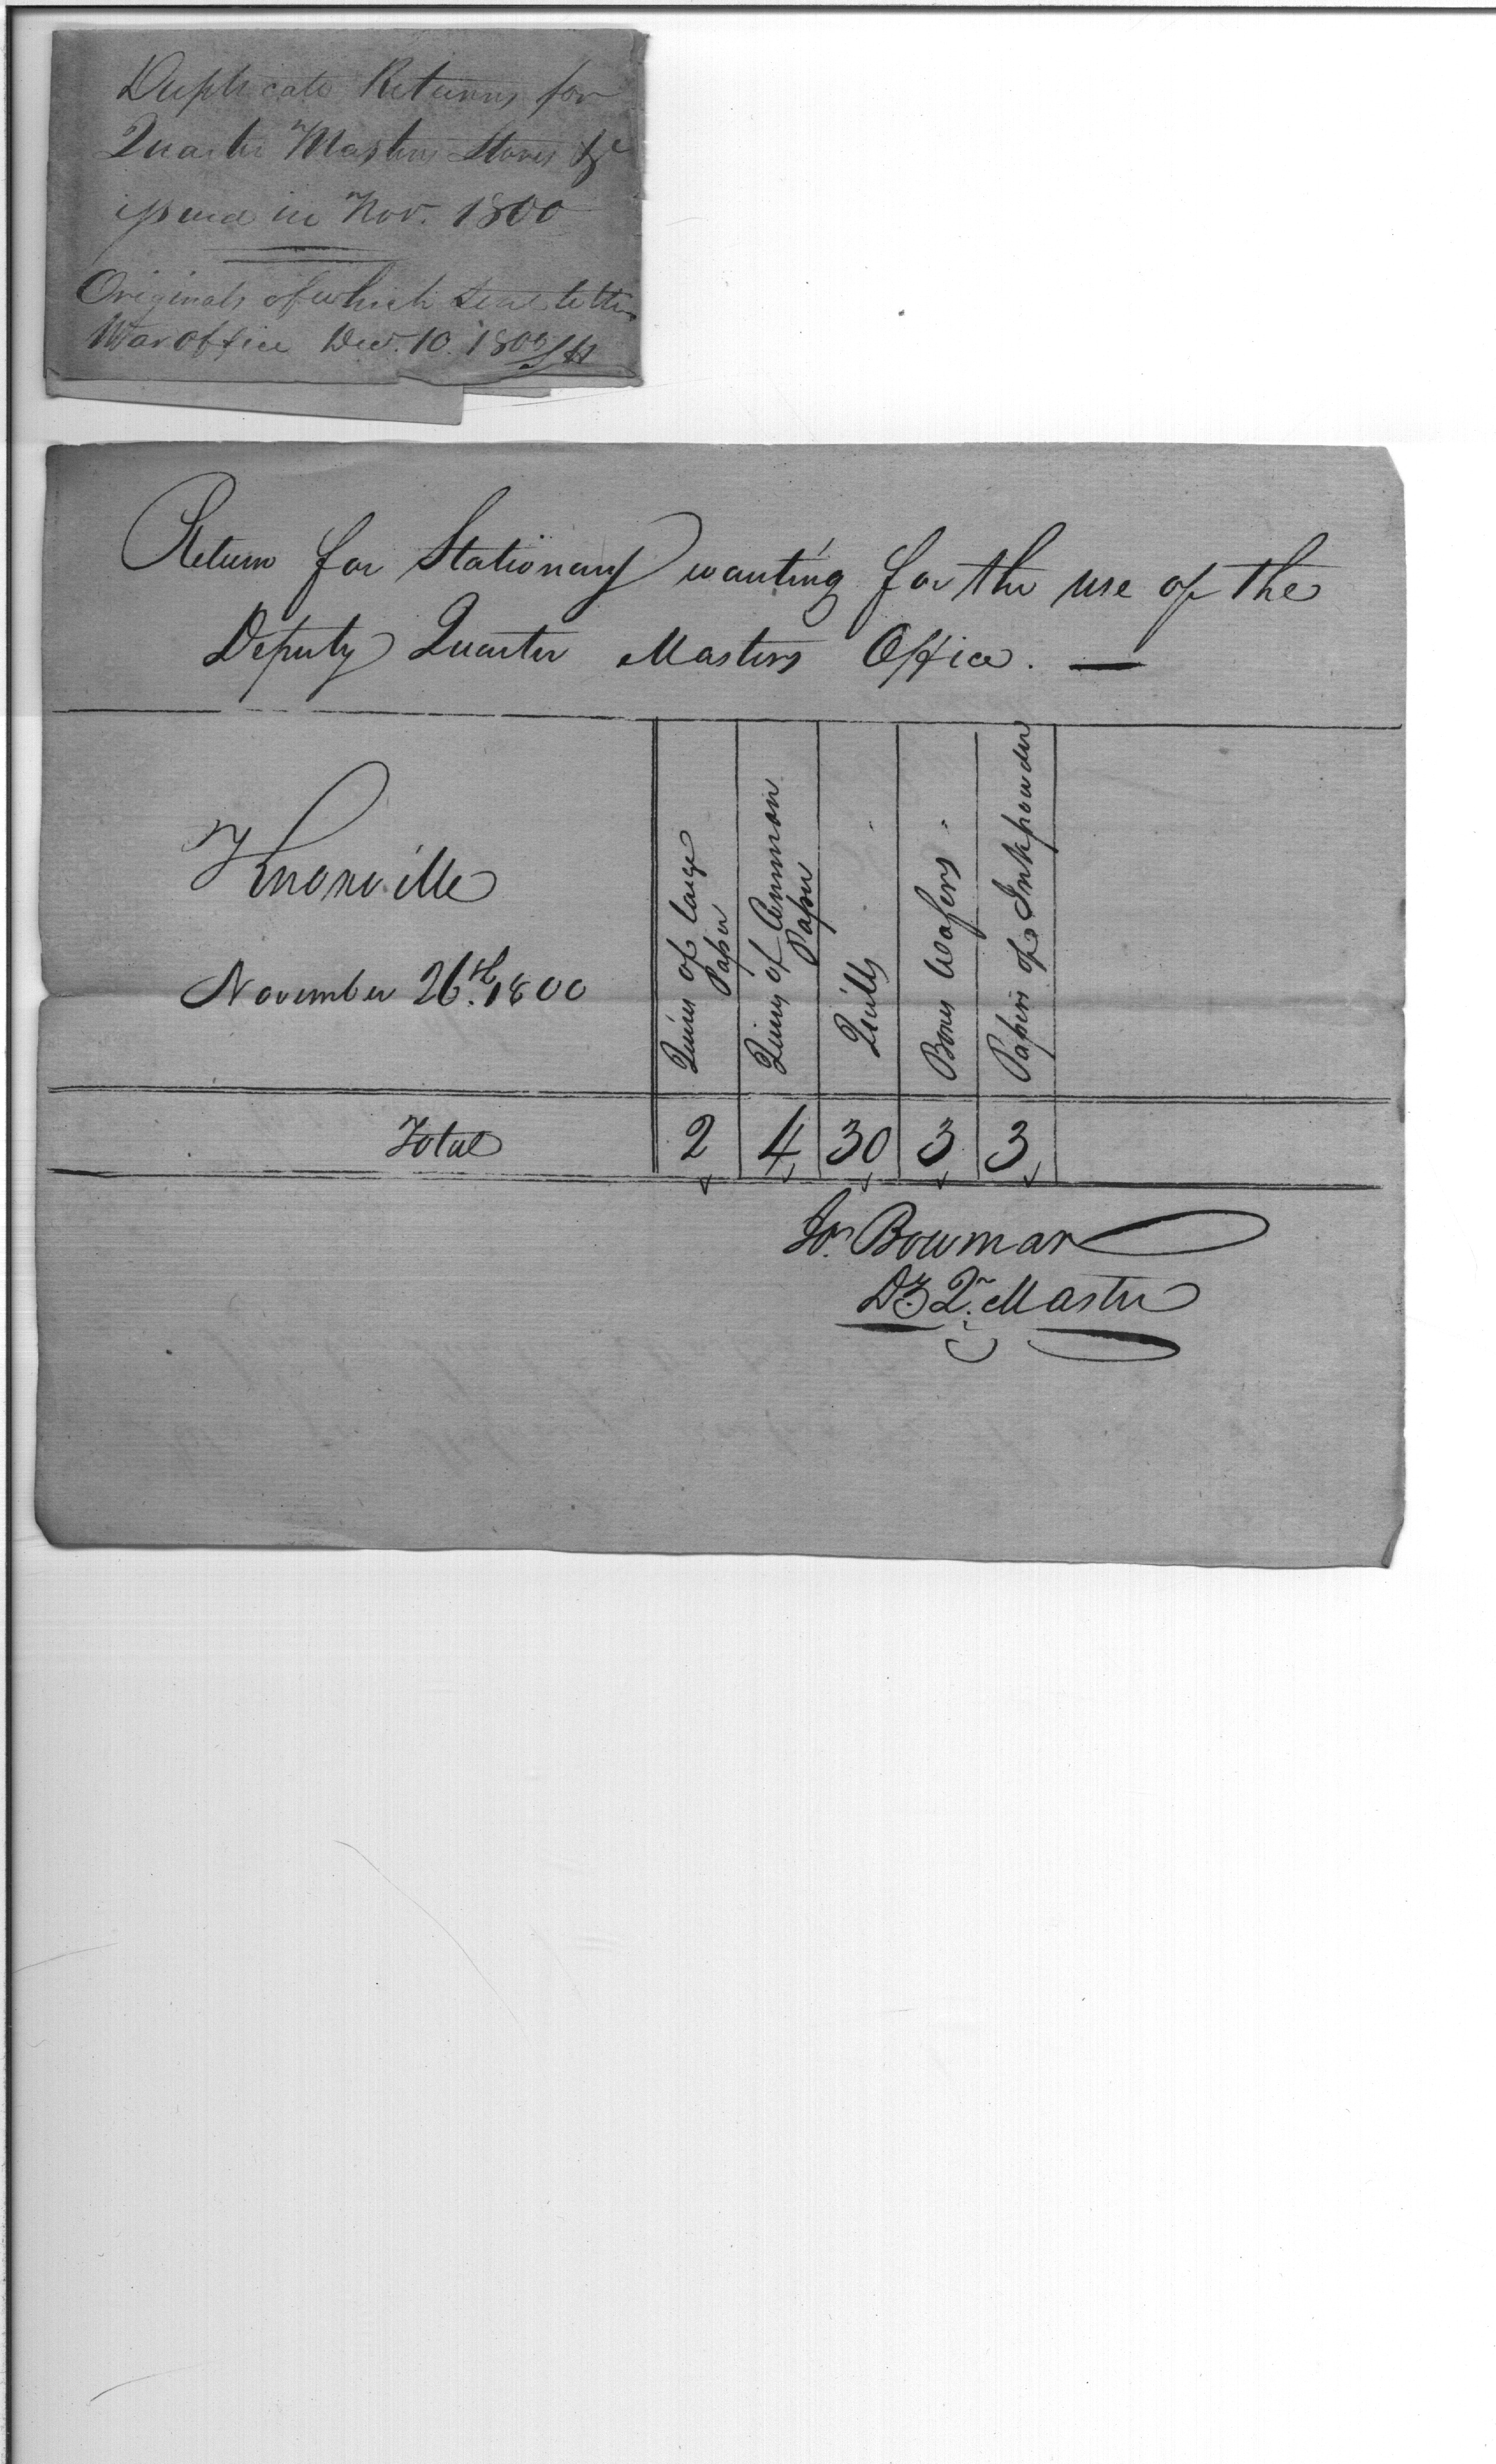 Duplicate Returns for
Quarter Masters Stores &c
issued in Nov. 1800
Originals of which sent to the
War office Dec. 10. 1800
Return for Stationary wanting for the use of the
Deputy Quarter Masters Office. —
Knoxville
November 26th. 1800
Quires of large
Paper
Quires of Common
Paper
Quills
Boxes Wafers
Papers of Inkpowder
Total 2 4 30 3 3
Jos. Bowmar
Dy. Qr. Master